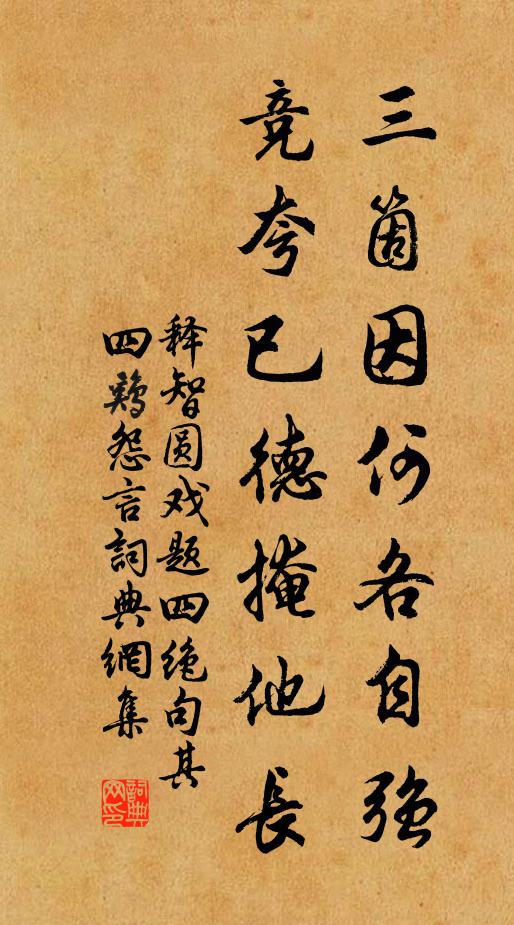 三箇因何各自強
竞夸已德掩他長
释智圆戏题四绝句其
四鶏怨言詞典網集
詞典网印